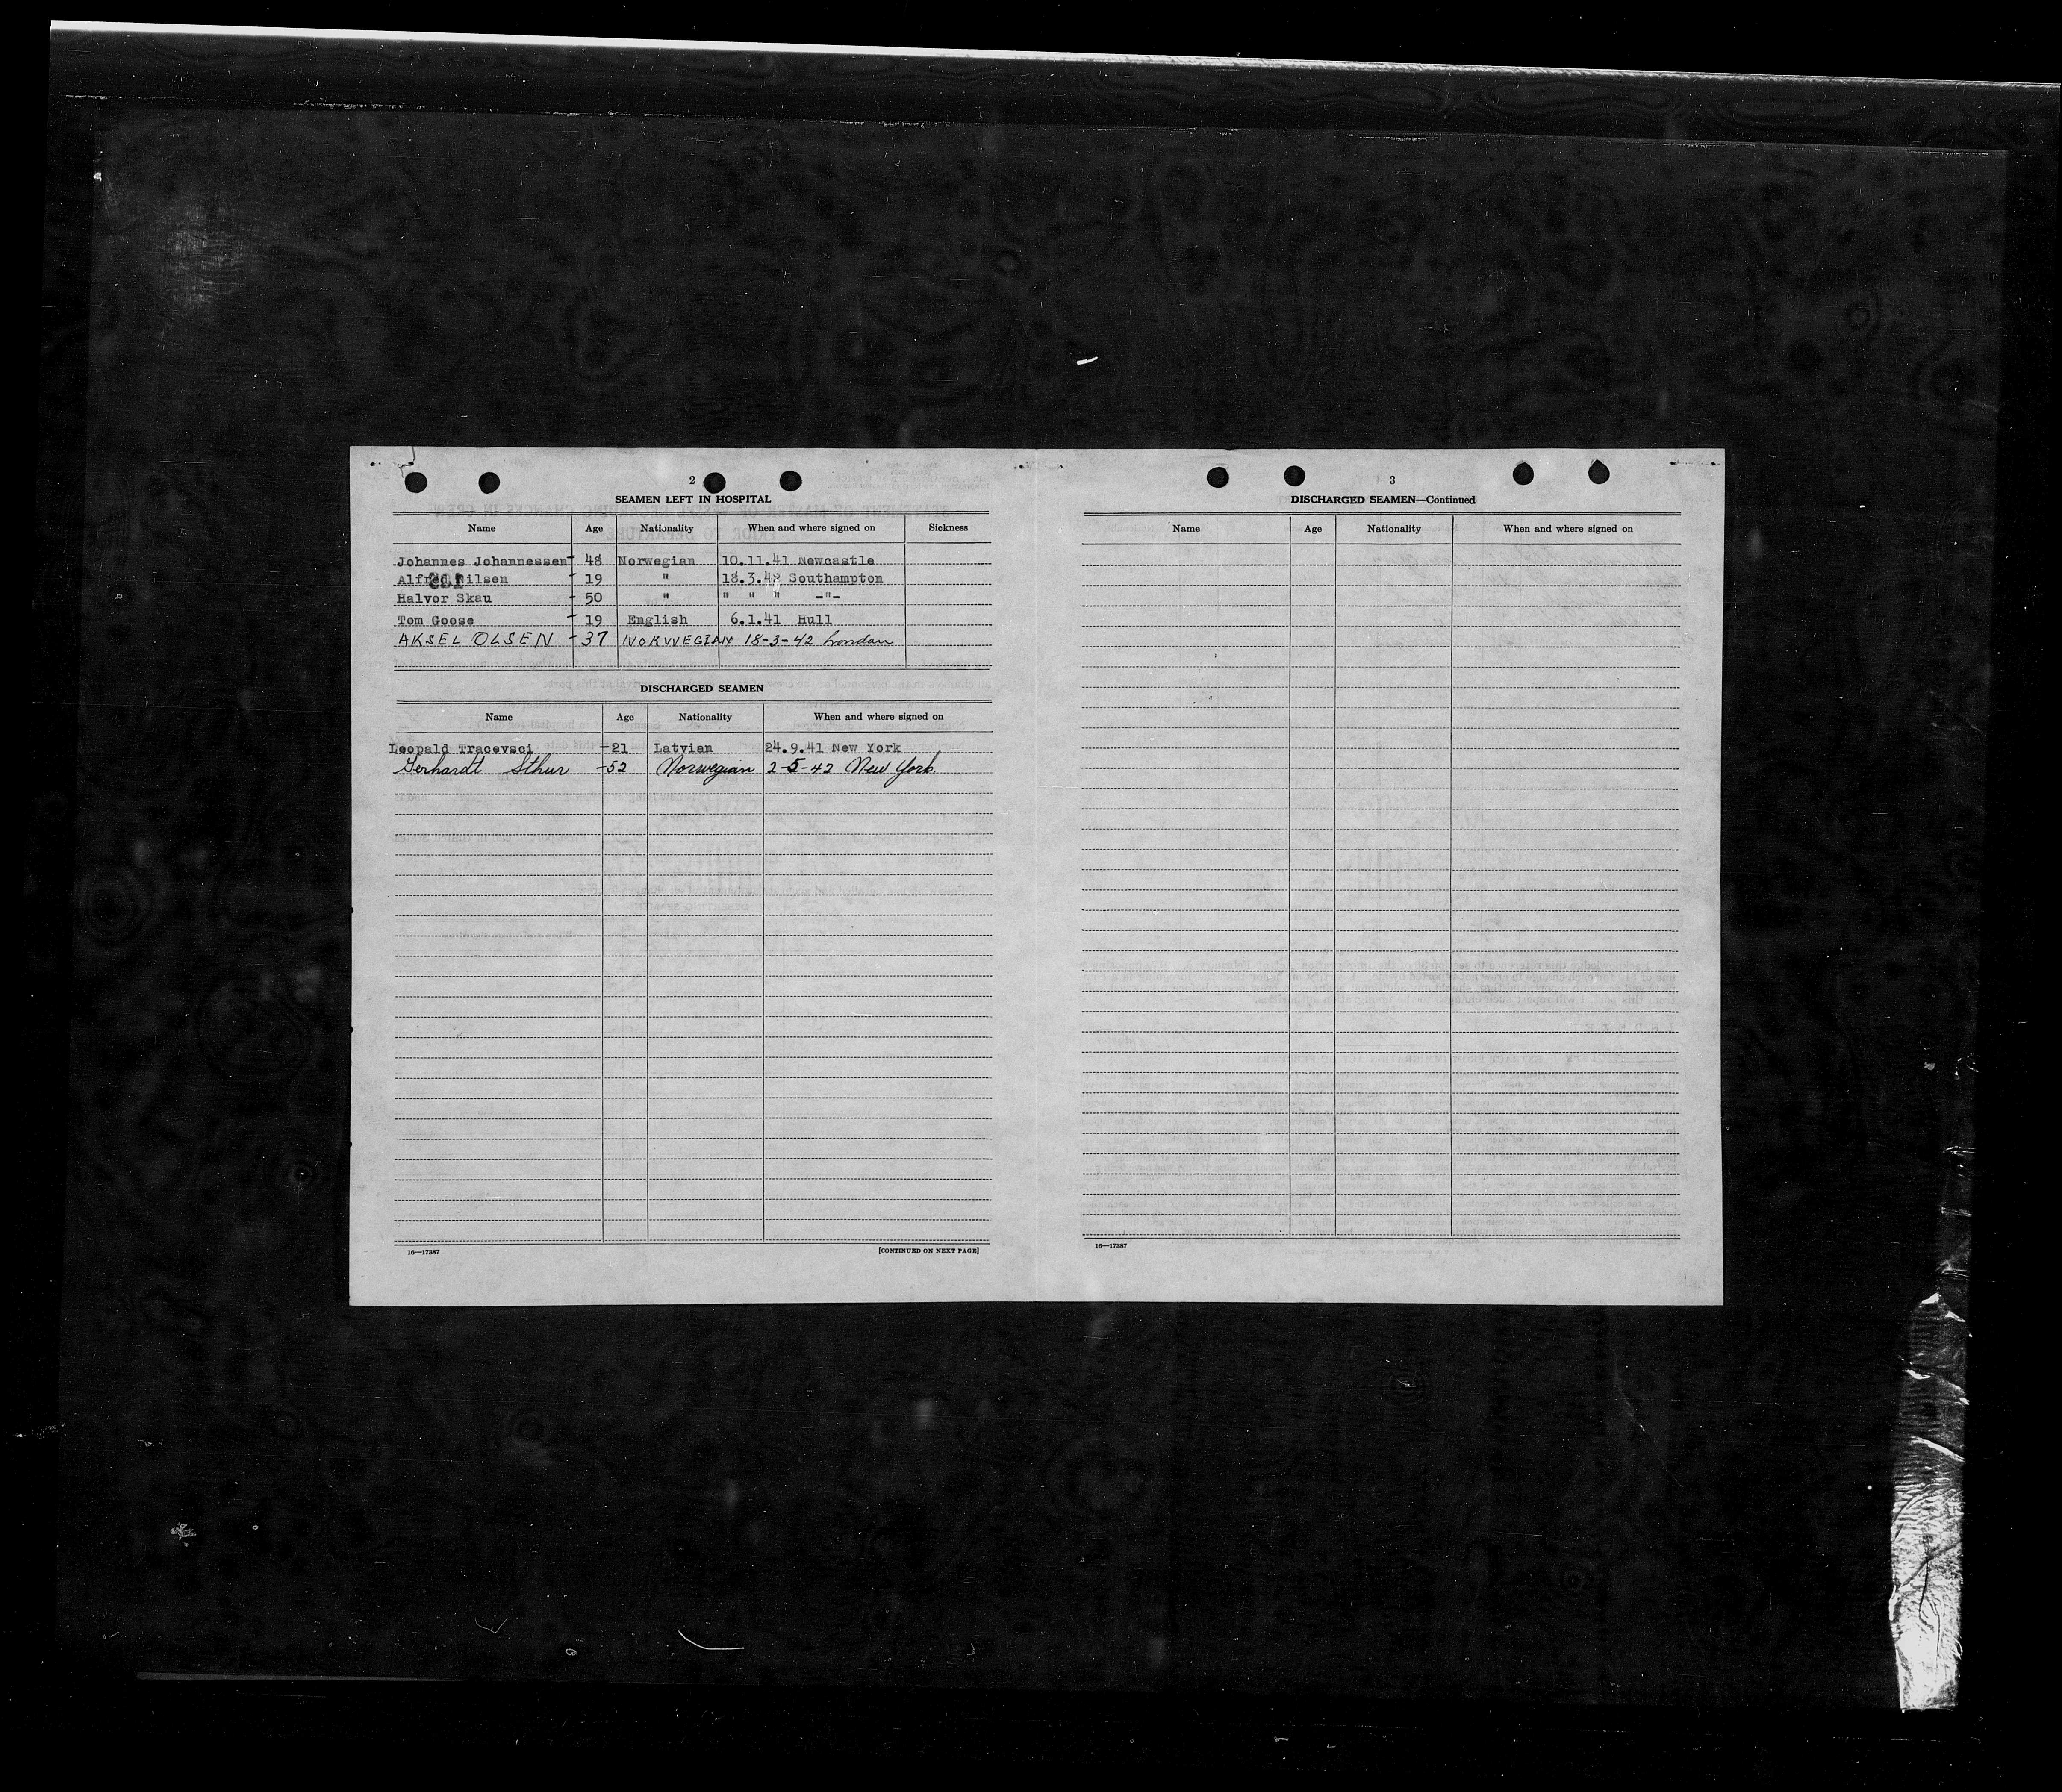 2
SEAMEN LEFT IN HOSPITAL
Name Age Nationality When and where signed on Sickness
Johannes Johannessen - 48 Norwegian 10.11.41 Newcastle
Alfred Nilsen - 19 " 18.3.42 Southampton
Halvor Skau - 50 " " " " -"-
Tom Goose - 19 English 6.1.41 Hull
AKSEL OLSEN - 37 NORWEGIAN 18-3-42 London
DISCHARGED SEAMEN
Name Age Nationality When and where signed on
Leopald Tracevsci -21 Latvian 24.9.41 New York
Gerhardt Sthur -52 Norwegian 2-5-42 New York
16—17387
[CONTINUED ON NEXT PAGE]
3
DISCHARGED SEAMEN—Continued
Name Age Nationality When and where signed on
16—17387